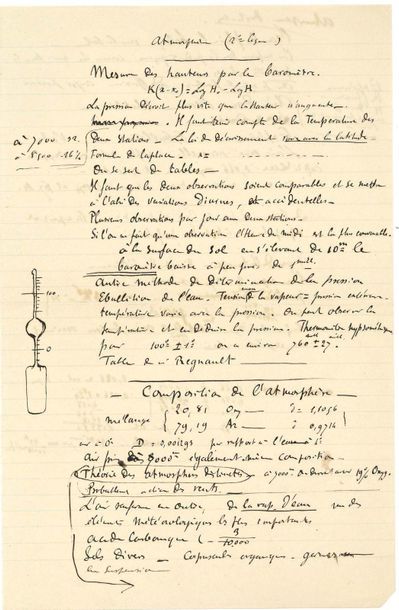 Atmosphère (2e leçon)
Mesure des hauteurs par le baromètre.
K(z-z0) = Lg H0 - Lg H
La pression décroit plus vite que la hauteur n'augmente.
Il faut tenir compte de la Température des
à 7000 m.
à 8500
deux stations - La loi de décroissement varie avec la latitude
Formule de Laplace - z =
On se sert de tables -
Il faut que les deux observations soient comparables et se mettre
à l'abri des variations diurnes, et accidentelles -
Plusieurs observations par jour aux deux stations -
Si l'on ne fait qu'une observation l'Heure de midi est la plus convenable.
à la surface du sol en s'élevant de 10m le
baromètre baisse à peu près de 1 mill.
Autre méthode de détermination de la pression
Ebullition de l'eau. Tension de la vapeur = pression extérieure.
température varie avec la pression. On peut observer la
température et en déduire la pression. Thermomètre hypsométrique
pour 100° ± 1° on a environ 760 ± 27 mill
Table de Regnault
100
0
- Composition de l'atmosphère -
mélange
20,81 Oxy - d = 1,1056
79,19 Az - d = 0,9714
air à 0° D = 0,001293 par rapport à l'eau à 4°
Air pris 8000m également même composition -
Théorie des atmosphères distinctes à 7000m on devrait avoir 19% Oxyg.
Brouillées action des vents. -
L'air renferme en outre, de la vap. d'eau un des
éléments météorologiques les plus importants
acide carbonique 3/10,000
Sels divers - Corpuscules organiques -
en suspension